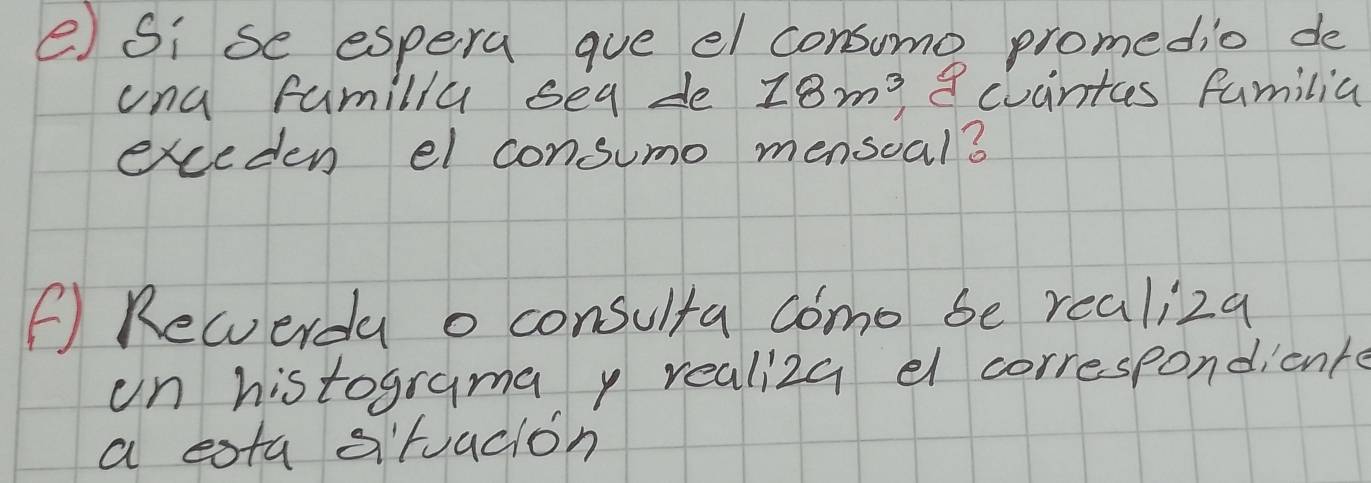 e) Si se espera que el consumo promedio de
una familia sea de 18m³, ¿cuántas familia
exceden el consumo mensual?
f) Recuerda o consulta cómo se realiza
un histograma y realiza el correspondiente
a esta situación